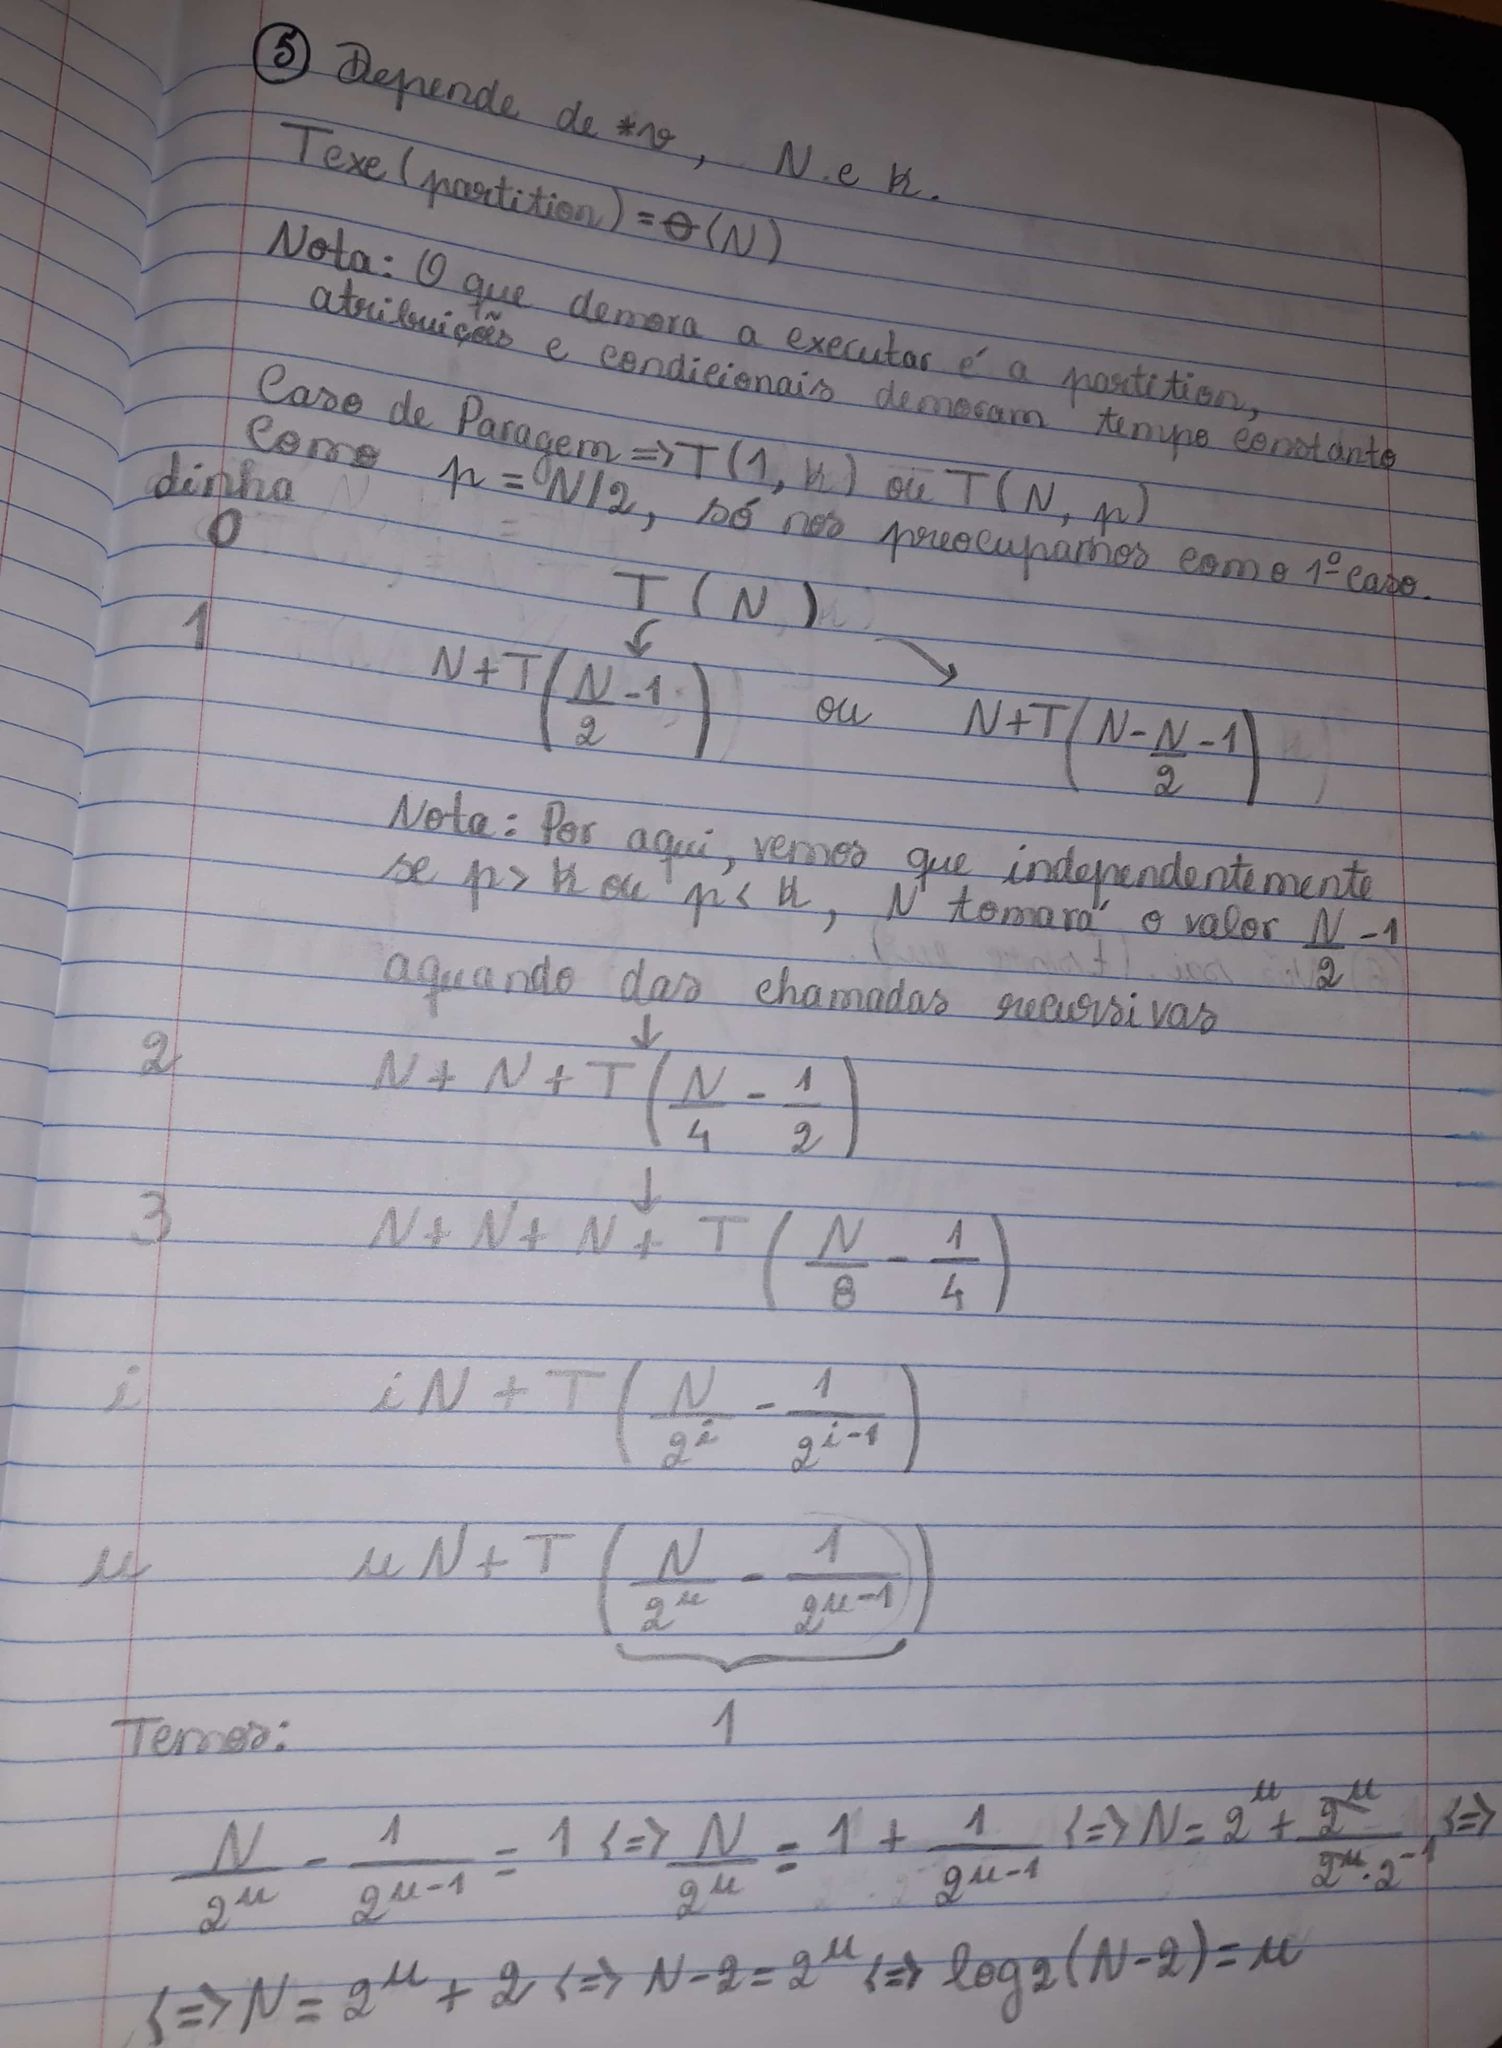 ⑤ Depende de *v, N e k.
Texe(partition) = θ(N)
Nota: O que demora a executar é a partition,
atribuições e condicionais demoram tempo constante
Caso de Paragem => T(1, k) ou T(N, p)
Como p = N/2, só nos preocupamos com o 1º caso.
dinha
0 T(N)
1 N+T(N/2 - 1) ou N+T(N - N/2 - 1)
Nota: Por aqui, vemos que independentemente
se p > k ou p < k, N tomará o valor N/2 - 1
aquando das chamadas recursivas
2 N + N + T(N/4 - 1/2)
3 N + N + N + T(N/8 - 1/4)
i iN + T(N/2^i - 1/2^(i-1))
u uN + T(N/2^u - 1/2^(u-1))
1
Temos:
N/2^u - 1/2^(u-1) = 1 <=> N/2^u = 1 + 1/2^(u-1) <=> N = 2^u + 2^u/(2^u · 2^-1) <=>
<=> N = 2^u + 2 <=> N - 2 = 2^u <=> log2(N-2) = u